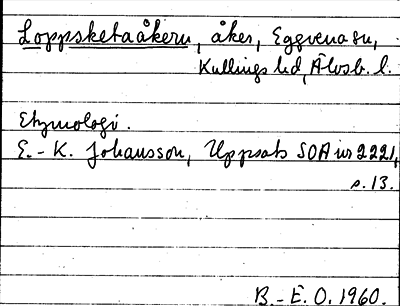 Loppsketaåkern, åker, Eggvena sn,
Kullings hd, Älvsb. l.
Etymologi.
E.-K. Johansson, Uppsats SOA nr 2221,
s. 13.
B.-E. O. 1960.